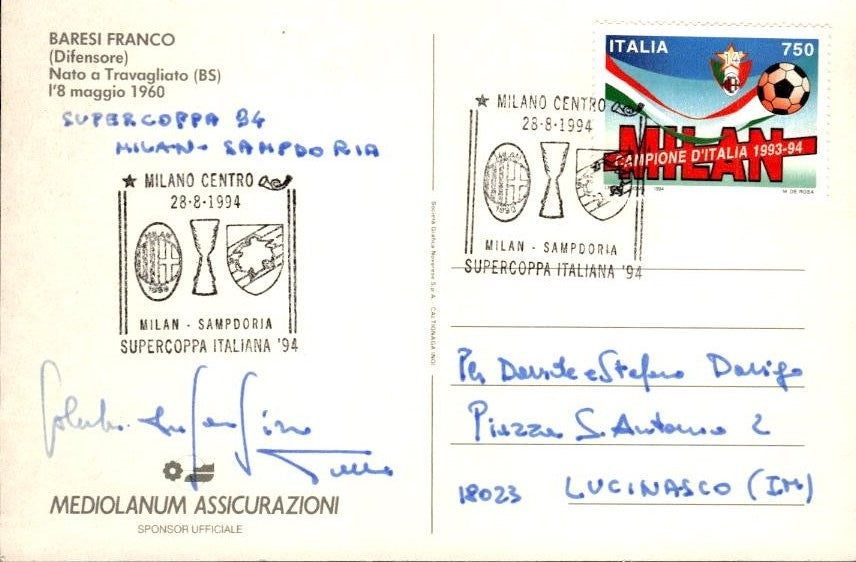 BARESI FRANCO
(Difensore)
Nato a Travagliato (BS)
l'8 maggio 1960
SUPERCOPPA 94
MILAN - SAMPDORIA
★ MILANO CENTRO
28-8-1994
MILAN
1899
MILAN - SAMPDORIA
SUPERCOPPA ITALIANA '94
MEDIOLANUM ASSICURAZIONI
SPONSOR UFFICIALE
Società Grafica Novarese S.p.A. - CALTIGNAGA (NO)
ITALIA 750
MILAN
CAMPIONE D'ITALIA 1993-94
1994 M. DE ROSA
★ MILANO CENTRO
28-8-1994
MILAN
1899
MILAN - SAMPDORIA
SUPERCOPPA ITALIANA '94
Davide e Stefano
Piazza S. Antonio 2
18023 LUCINASCO (IM)